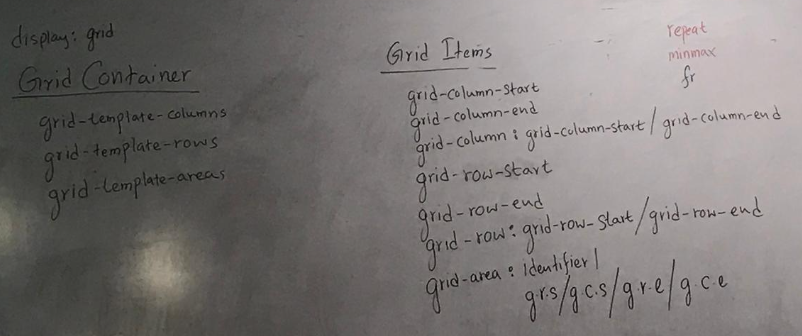 display: grid
Grid Container
grid-template-columns
grid-template-rows
grid-template-areas
Grid Items
grid-column-start
grid-column-end
grid-column : grid-column-start / grid-column-end
grid-row-start
grid-row-end
grid-row : grid-row-start / grid-row-end
grid-area : identifier |
g.r.s / g.c.s / g.r.e / g.c.e
repeat
minmax
fr